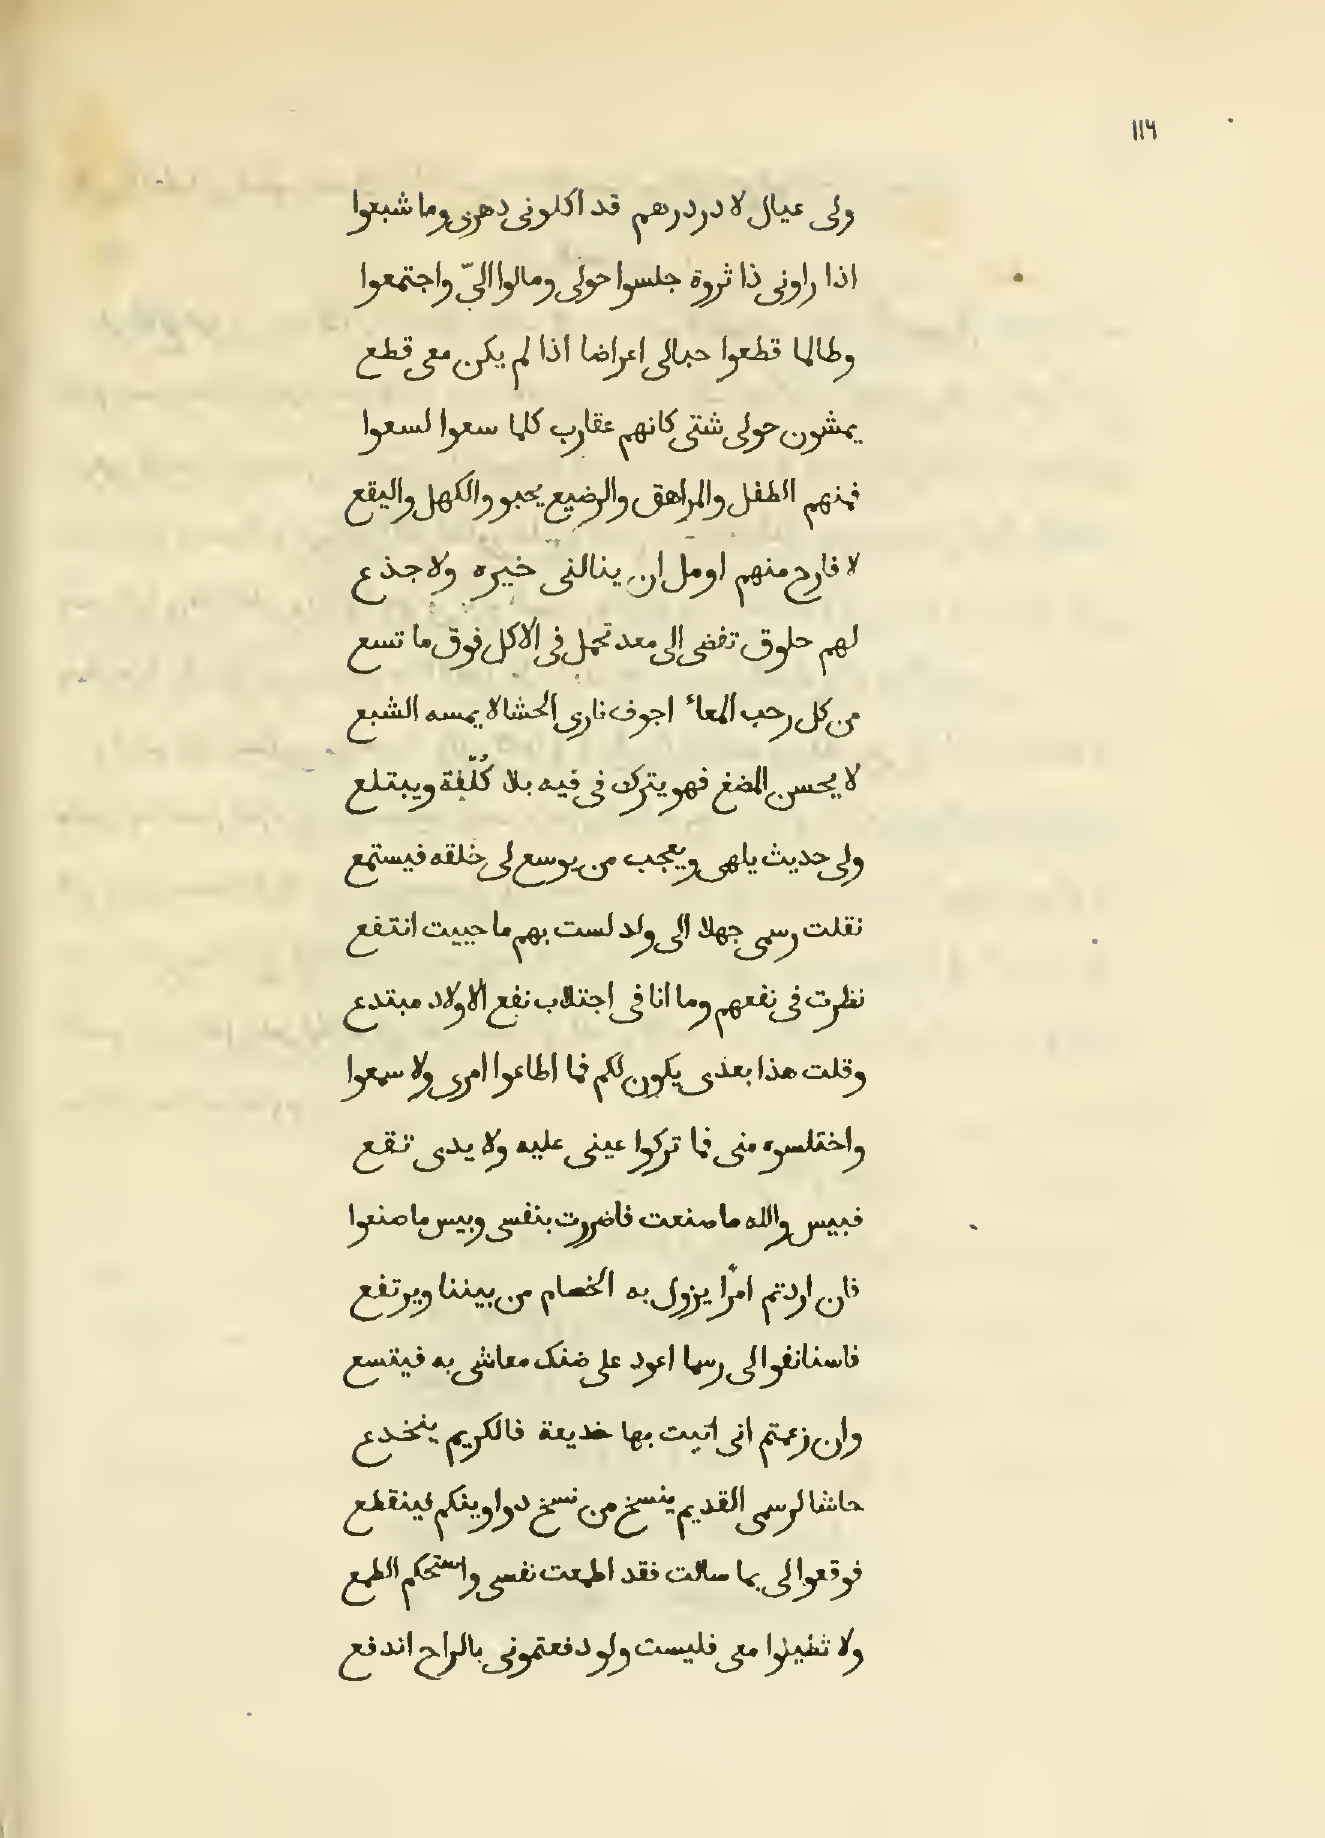 ١١٦
ولى عيال لا در درهم قد اكلونى دهرى وما شبعوا
اذا راونى ذا ثروة جلسوا حولى ومالوا الىّ واجتمعوا
وطالما قطعوا حبالى اعراضا اذا لم يكن معى قطع
يمشون حولى شتى كانهم عقارب كلما سعوا لسعوا
فمنهم الطفل والمراهق والرضيع يحبو والكهل واليقع
لا فارح منهم اومل ان ينالنى خيره ولا جذع
لهم حلوق تفضى الى معد تحمل فى الاكل فوق ما تسع
من كل رحب المعاء اجوف نارى الحشا لا يمسه الشبع
لا يحسن المضغ فهو يترك فى فيه بلا كُلّفة ويبتلع
ولى حديث يلهى ويعجب من يوسع لى خلقه فيستمع
نقلت رسمى جهلا الى ولد لست بهم ما حييت انتفع
نظرت فى نفعهم وما انا فى اجتلاب نفع الاولاد مبتدع
وقلت هذا بعدى يكون لكم فما اطاعوا امرى ولا سمعوا
واختلسوه منى فما تركوا عينى عليه ولا يدى تقع
فبيس والله ما صنعت فاضررت بنفسى وبيس ما صنعوا
فان اردتم امرًا يزول به الخصام من بيننا ويرتفع
فاستانفوا لى رسما اعود على ضنك معاشى به فيتسع
وان زعمتم انى اتيت بها خديعة فالكريم ينخدع
حاشا لرسمى القديم ينسخ من نسخ دواوينكم فينقطع
فوقعوا لى بما سالت فقد اطمعت نفسى واستحكم الطمع
ولا معى فليست ولو دفعتمونى بالراح اندفع